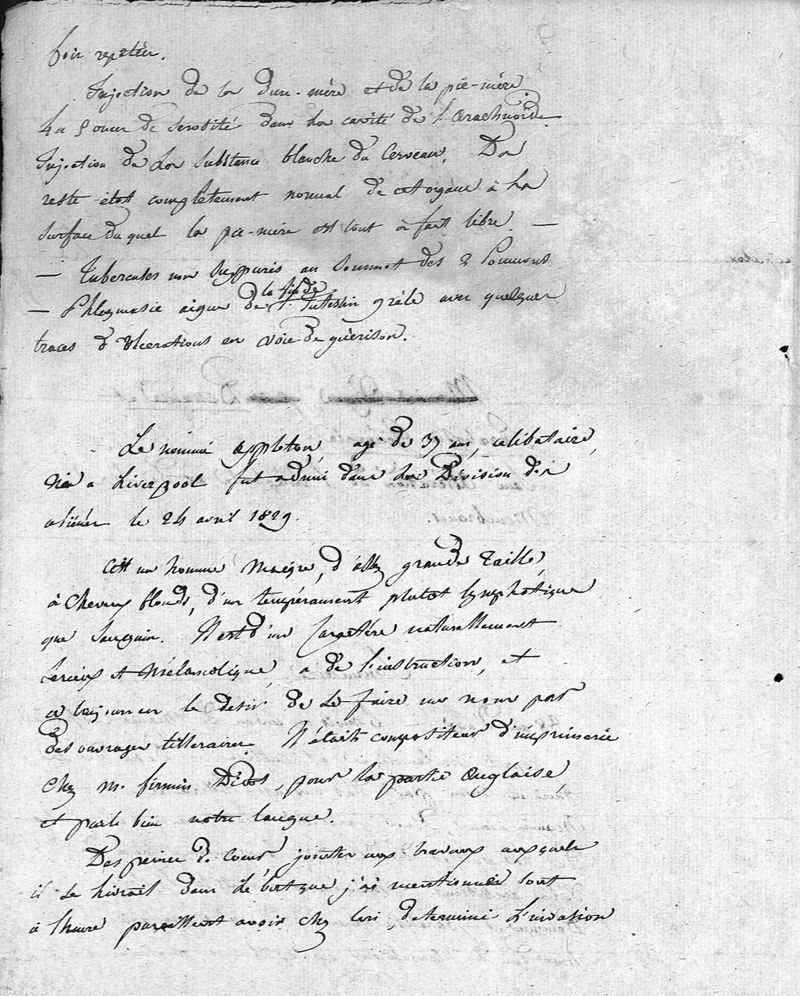 fois repetée.
Injection de la dure-mère et de la pie-mère.
4 a 5 onces de serosité dans la cavité de l'arachnoïde
Injection de la substance blanche du cerveau. Du
reste etat completement normal de cet organe à la
surface duquel la pie-mère est tout à fait libre. —
— Tubercules non suppurés au sommet des 2 Poumons
la fin de
— Phlegmasie aigue de l'Intestin grèle avec quelques
traces d'ulcerations en voie de guérison.
Le nommé Appleton, agé de 37 ans, celibataire,
Né a Liverpool fut admis dans la Division des
aliénés le 24 avril 1829.
C'est un homme maigre, d'assez grande taille,
à cheveux blonds, d'un tempérament plutot lymphatique
que sanguin. Il est d'un caractère naturellement
serieux et mélancolique, a de l'instruction, et
a toujours eu le desir de se faire un nom par
des ouvrages litteraires. Il était compositeur d'imprimerie
chez M. firmin Didot, pour la partie anglaise,
et parle bien notre langue.
Des peines de coeur jointes aux travaux auxquels
il se livrait dans le but que j'ai mentionné tout
à l'heure paraissent avoir chez lui, determiné l'invasion